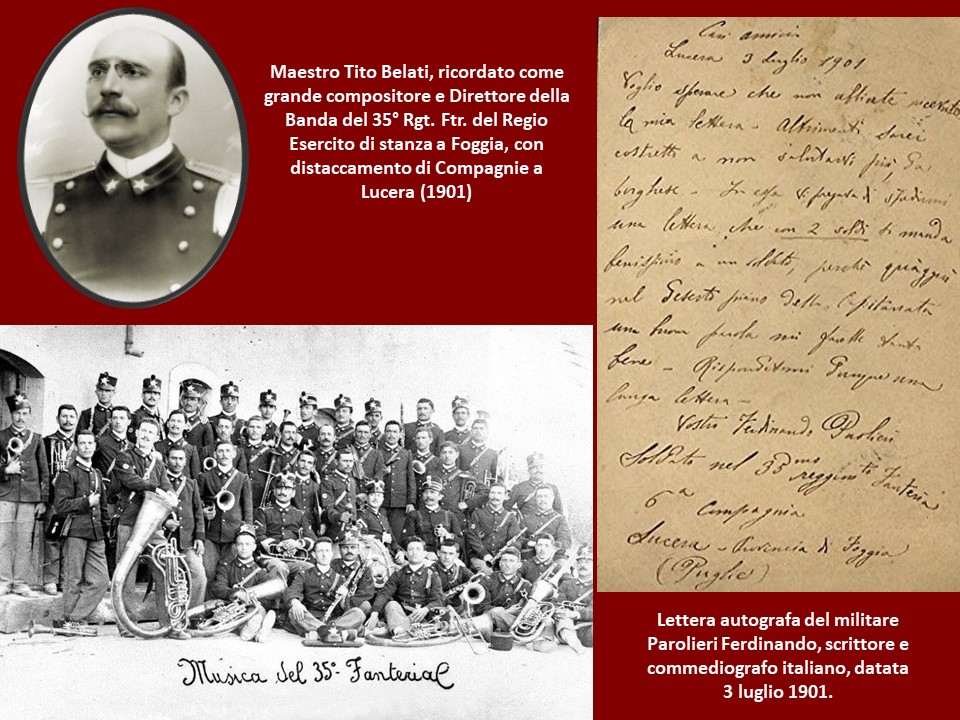 Maestro Tito Belati, ricordato come
grande compositore e Direttore della
Banda del 35° Rgt. Ftr. del Regio
Esercito di stanza a Foggia, con
distaccamento di Compagnie a
Lucera (1901)
Cari amici
Lucera 3 Luglio 1901
Voglio sperare che non abbiate ricevuto
la mia lettera - Altrimenti sarei
costretto a non salutarvi più, da
borghese - In essa vi pregava di spedirmi
una lettera che con 2 soldi si manda
benissimo a un soldato, perchè quaggiù
nel deserto piano della Capitanata
una buona parola mi farebbe tanto
bene - Rispondetemi dunque una
lunga lettera -
Vostro Ferdinando Paolieri
Soldato nel 35mo reggim.to Fanteria
6a Compagnia
Lucera - Provincia di Foggia
(Puglie)
Musica del 35° Fanteria
Lettera autografa del militare
Parolieri Ferdinando, scrittore e
commediografo italiano, datata
3 luglio 1901.